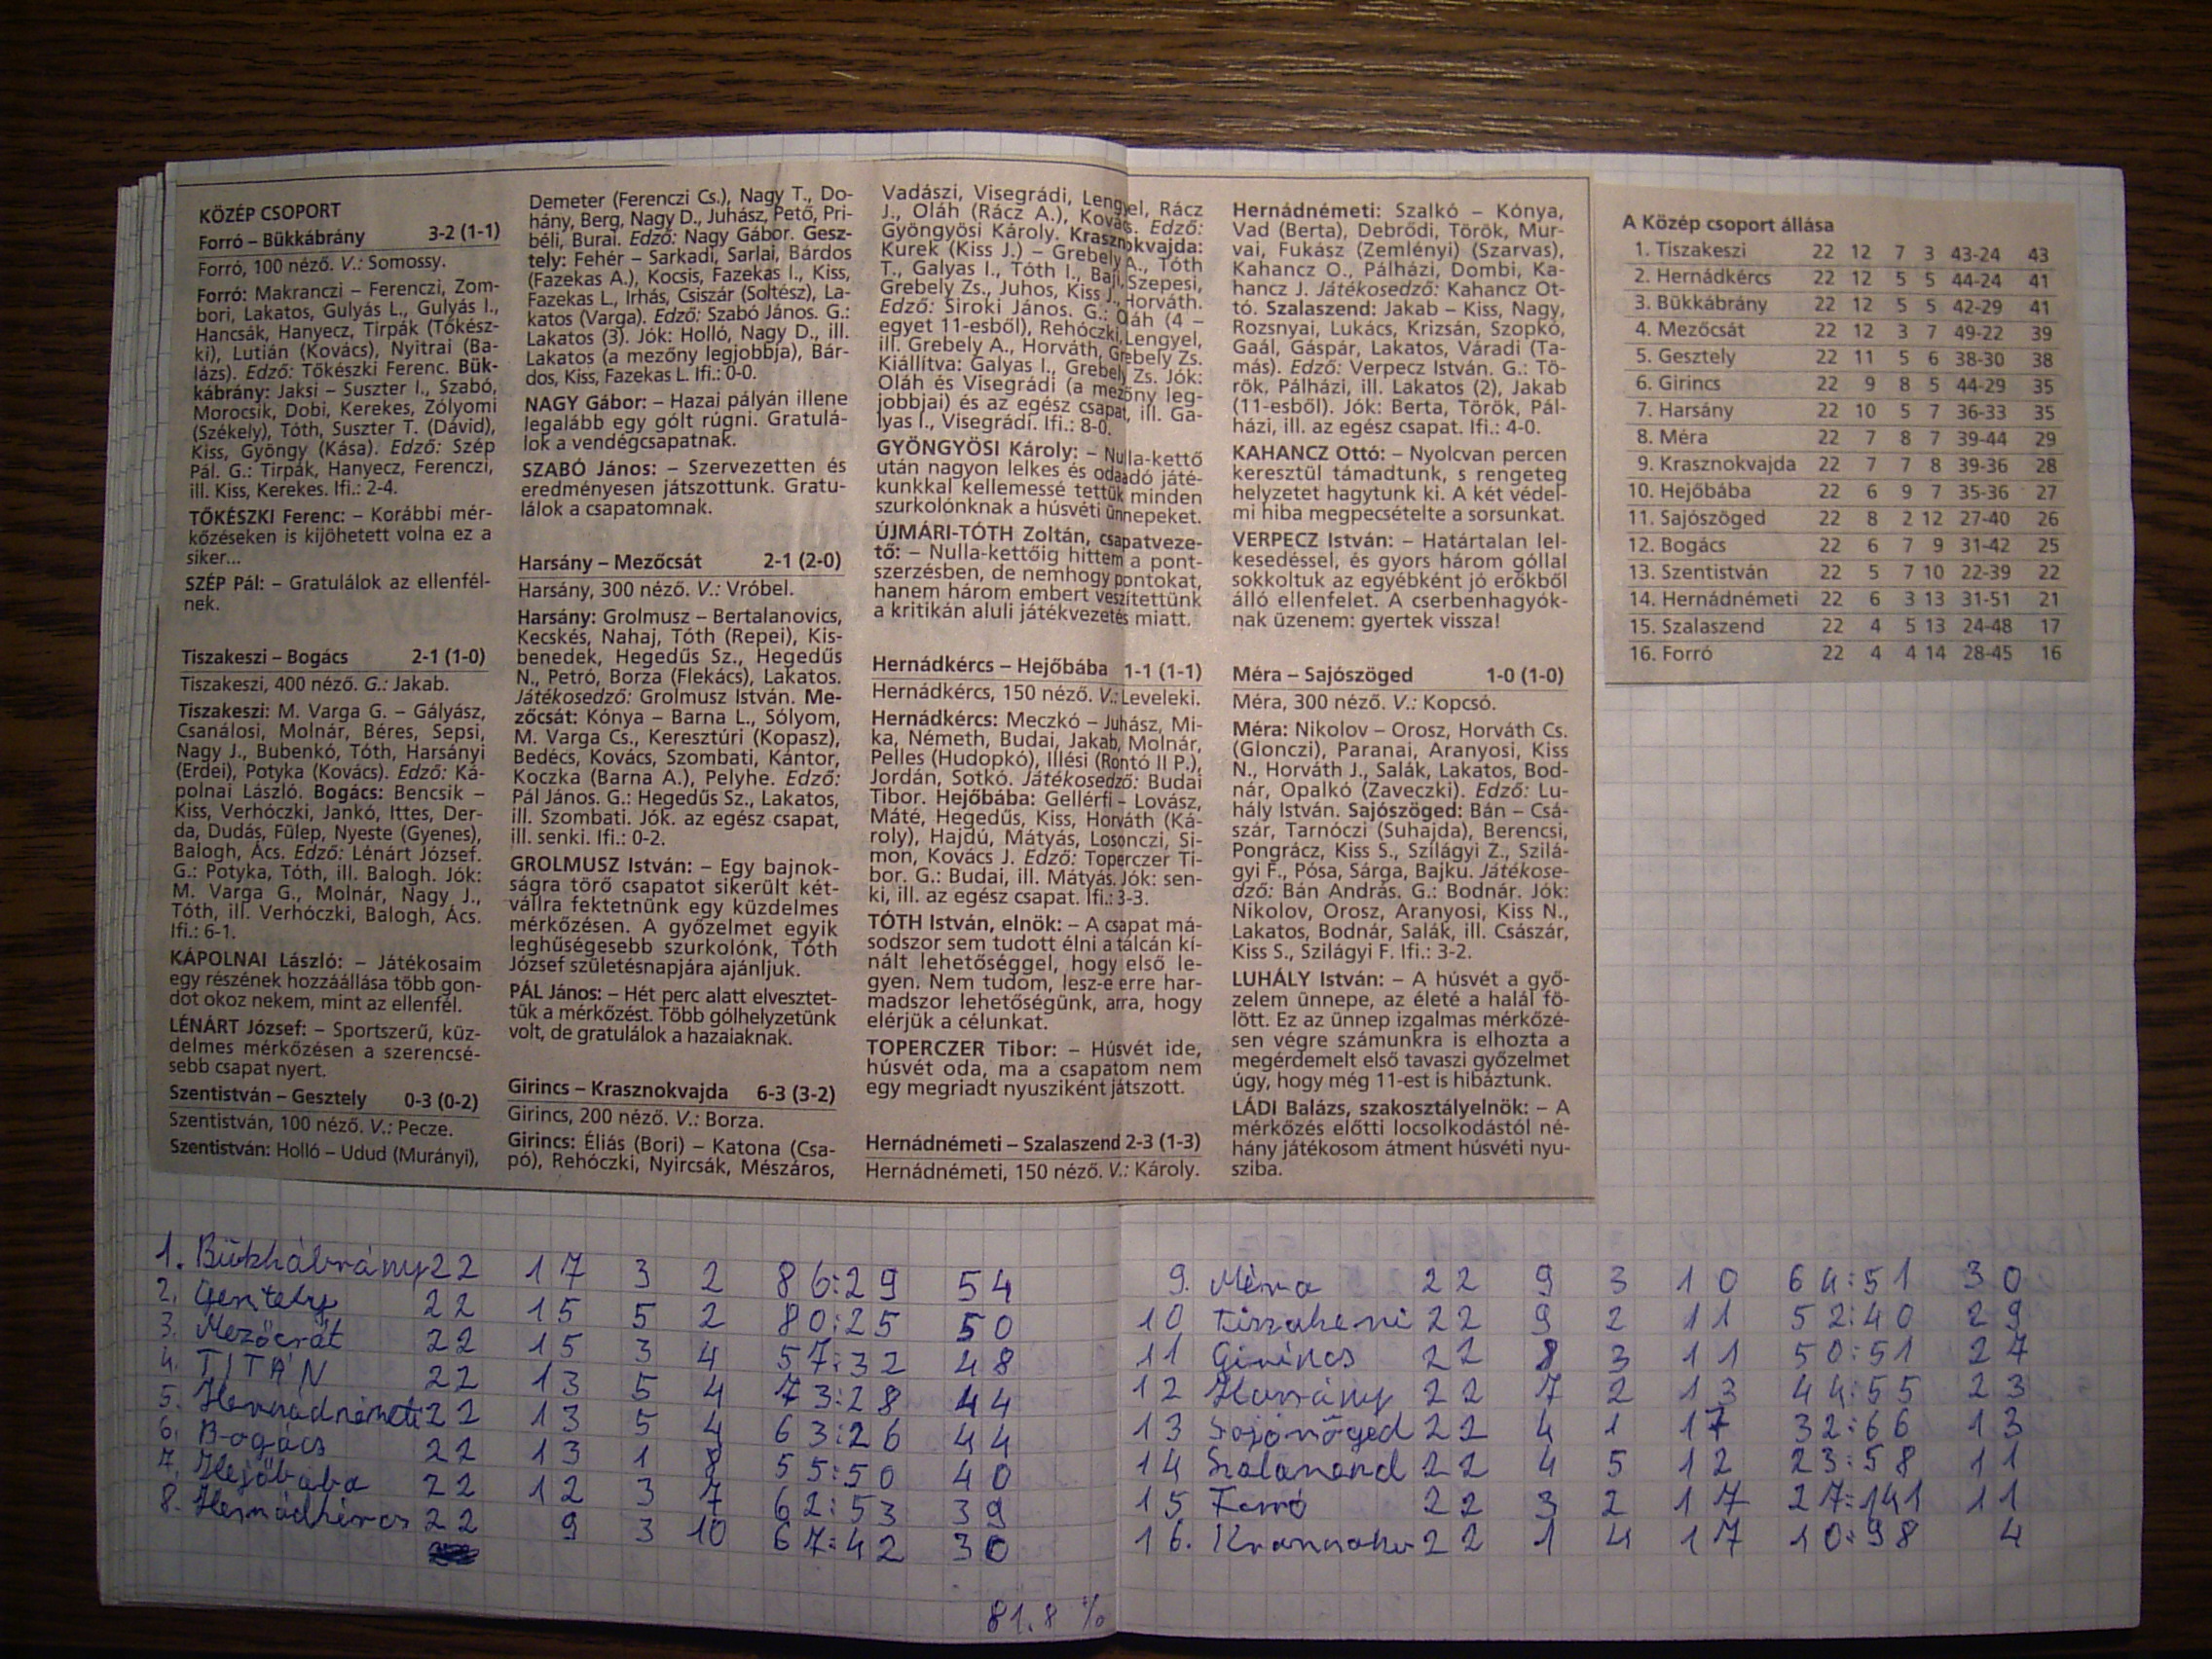 KÖZÉP CSOPORT
Forró – Bükkábrány 3-2 (1-1)
Forró, 100 néző. V.: Somossy.
Forró: Makranczi – Ferenczi, Zom-
bori, Lakatos, Gulyás L., Gulyás I.,
Hancsák, Hanyecz, Tirpák (Tőkész-
ki), Lutián (Kovács), Nyitrai (Ba-
lázs). Edző: Tőkészki Ferenc. Bük-
kábrány: Jaksi – Suszter I., Szabó,
Morocsik, Dobi, Kerekes, Zólyomi
(Székely), Tóth, Suszter T. (Dávid),
Kiss, Gyöngy (Kása). Edző: Szép
Pál. G.: Tirpák, Hanyecz, Ferenczi,
ill. Kiss, Kerekes. Ifi.: 2-4.
TŐKÉSZKI Ferenc: – Korábbi mér-
kőzéseken is kijöhetett volna ez a
siker...
SZÉP Pál: – Gratulálok az ellenfél-
nek.
Tiszakeszi – Bogács 2-1 (1-0)
Tiszakeszi, 400 néző. G.: Jakab.
Tiszakeszi: M. Varga G. – Gályász,
Csanálosi, Molnár, Béres, Sepsi,
Nagy J., Bubenkó, Tóth, Harsányi
(Erdei), Potyka (Kovács). Edző: Ká-
polnai László. Bogács: Bencsik –
Kiss, Verhóczki, Jankó, Ittes, Der-
da, Dudás, Fülep, Nyeste (Gyenes),
Balogh, Ács. Edző: Lénárt József.
G.: Potyka, Tóth, ill. Balogh. Jók:
M. Varga G., Molnár, Nagy J.,
Tóth, ill. Verhóczki, Balogh, Ács.
Ifi.: 6-1.
KÁPOLNAI László: – Játékosaim
egy részének hozzáállása több gon-
dot okoz nekem, mint az ellenfél.
LÉNÁRT József: – Sportszerű, küz-
delmes mérkőzésen a szerencsé-
sebb csapat nyert.
Szentistván – Gesztely 0-3 (0-2)
Szentistván, 100 néző. V.: Pecze.
Szentistván: Holló – Udud (Murányi),
Demeter (Ferenczi Cs.), Nagy T., Do-
hány, Berg, Nagy D., Juhász, Pető, Pri-
béli, Burai. Edző: Nagy Gábor. Gesz-
tely: Fehér – Sarkadi, Sarlai, Bárdos
(Fazekas A.), Kocsis, Fazekas I., Kiss,
Fazekas L., Irhás, Csiszár (Soltész), La-
katos (Varga). Edző: Szabó János. G.:
Lakatos (3). Jók: Holló, Nagy D., ill.
Lakatos (a mezőny legjobbja), Bár-
dos, Kiss, Fazekas L. Ifi.: 0-0.
NAGY Gábor: – Hazai pályán illene
legalább egy gólt rúgni. Gratulá-
lok a vendégcsapatnak.
SZABÓ János: – Szervezetten és
eredményesen játszottunk. Gratu-
lálok a csapatomnak.
Harsány – Mezőcsát 2-1 (2-0)
Harsány, 300 néző. V.: Vróbel.
Harsány: Grolmusz – Bertalanovics,
Kecskés, Nahaj, Tóth (Repei), Kis-
benedek, Hegedűs Sz., Hegedűs
N., Petró, Borza (Flekács), Lakatos.
Játékosedző: Grolmusz István. Me-
zőcsát: Kónya – Barna L., Sólyom,
M. Varga Cs., Keresztúri (Kopasz),
Bedécs, Kovács, Szombati, Kántor,
Koczka (Barna A.), Pelyhe. Edző:
Pál János. G.: Hegedűs Sz., Lakatos,
ill. Szombati. Jók. az egész csapat,
ill. senki. Ifi.: 0-2.
GROLMUSZ István: – Egy bajnok-
ságra törő csapatot sikerült két-
vállra fektetnünk egy küzdelmes
mérkőzésen. A győzelmet egyik
leghűségesebb szurkolónk, Tóth
József születésnapjára ajánljuk.
PÁL János: – Hét perc alatt elvesztet-
tük a mérkőzést. Több gólhelyzetünk
volt, de gratulálok a hazaiaknak.
Girincs – Krasznokvajda 6-3 (3-2)
Girincs, 200 néző. V.: Borza.
Girincs: Éliás (Bori) – Katona (Csa-
pó), Rehóczki, Nyircsák, Mészáros,
Vadászi, Visegrádi, Lengyel, Rácz
J., Oláh (Rácz A.), Kovács. Edző:
Gyöngyösi Károly. Krasznokvajda:
Kurek (Kiss J.) – Grebely A., Tóth
T., Galyas I., Tóth I., Baji, Szepesi,
Grebely Zs., Juhos, Kiss J., Horváth.
Edző: Siroki János. G.: Oláh (4 –
egyet 11-esből), Rehóczki, Lengyel,
ill. Grebely A., Horváth, Grebely Zs.
Kiállítva: Galyas I., Grebely Zs. Jók:
Oláh és Visegrádi (a mezőny leg-
jobbjai) és az egész csapat, ill. Ga-
lyas I., Visegrádi. Ifi.: 8-0.
GYÖNGYÖSI Károly: – Nulla-kettő
után nagyon lelkes és odaadó játé-
kunkkal kellemessé tettük minden
szurkolónknak a húsvéti ünnepeket.
ÚJMÁRI-TÓTH Zoltán, csapatveze-
tő: – Nulla-kettőig hittem a pont-
szerzésben, de nemhogy pontokat,
hanem három embert veszítettünk
a kritikán aluli játékvezetés miatt.
Hernádkércs – Hejőbába 1-1 (1-1)
Hernádkércs, 150 néző. V.: Leveleki.
Hernádkércs: Meczkó – Juhász, Mi-
ka, Németh, Budai, Jakab, Molnár,
Pelles (Hudopkó), Illési (Rontó II P.),
Jordán, Sotkó. Játékosedző: Budai
Tibor. Hejőbába: Gellérfi – Lovász,
Máté, Hegedűs, Kiss, Horváth (Ká-
roly), Hajdú, Mátyás, Losonczi, Si-
mon, Kovács J. Edző: Toperczer Ti-
bor. G.: Budai, ill. Mátyás. Jók: sen-
ki, ill. az egész csapat. Ifi.: 3-3.
TÓTH István, elnök: – A csapat má-
sodszor sem tudott élni a tálcán kí-
nált lehetőséggel, hogy első le-
gyen. Nem tudom, lesz-e erre har-
madszor lehetőségünk, arra, hogy
elérjük a célunkat.
TOPERCZER Tibor: – Húsvét ide,
húsvét oda, ma a csapatom nem
egy megriadt nyusziként játszott.
Hernádnémeti – Szalaszend 2-3 (1-3)
Hernádnémeti, 150 néző. V.: Károly.
Hernádnémeti: Szalkó – Kónya,
Vad (Berta), Debrődi, Török, Mur-
vai, Fukász (Zemlényi) (Szarvas),
Kahancz O., Pálházi, Dombi, Ka-
hancz J. Játékosedző: Kahancz Ot-
tó. Szalaszend: Jakab – Kiss, Nagy,
Rozsnyai, Lukács, Krizsán, Szopkó,
Gaál, Gáspár, Lakatos, Váradi (Ta-
más). Edző: Verpecz István. G.: Tö-
rök, Pálházi, ill. Lakatos (2), Jakab
(11-esből). Jók: Berta, Török, Pál-
házi, ill. az egész csapat. Ifi.: 4-0.
KAHANCZ Ottó: – Nyolcvan percen
keresztül támadtunk, s rengeteg
helyzetet hagytunk ki. A két védel-
mi hiba megpecsételte a sorsunkat.
VERPECZ István: – Határtalan lel-
kesedéssel, és gyors három góllal
sokkoltuk az egyébként jó erőkből
álló ellenfelet. A cserbenhagyók-
nak üzenem: gyertek vissza!
Méra – Sajószöged 1-0 (1-0)
Méra, 300 néző. V.: Kopcsó.
Méra: Nikolov – Orosz, Horváth Cs.
(Glonczi), Paranai, Aranyosi, Kiss
N., Horváth J., Salák, Lakatos, Bod-
nár, Opalkó (Zaveczki). Edző: Lu-
hály István. Sajószöged: Bán – Csá-
szár, Tarnóczi (Suhajda), Berencsi,
Pongrácz, Kiss S., Szilágyi Z., Szilá-
gyi F., Pósa, Sárga, Bajku. Játékose-
dző: Bán András. G.: Bodnár. Jók:
Nikolov, Orosz, Aranyosi, Kiss N.,
Lakatos, Bodnár, Salák, ill. Császár,
Kiss S., Szilágyi F. Ifi.: 3-2.
LUHÁLY István: – A húsvét a győ-
zelem ünnepe, az életé a halál fö-
lött. Ez az ünnep izgalmas mérkőzé-
sen végre számunkra is elhozta a
megérdemelt első tavaszi győzelmet
úgy, hogy még 11-est is hibáztunk.
LÁDI Balázs, szakosztályelnök: – A
mérkőzés előtti locsolkodástól né-
hány játékosom átment húsvéti nyu-
sziba.
A Közép csoport állása
1. Tiszakeszi 22 12 7 3 43-24 43
2. Hernádkércs 22 12 5 5 44-24 41
3. Bükkábrány 22 12 5 5 42-29 41
4. Mezőcsát 22 12 3 7 49-22 39
5. Gesztely 22 11 5 6 38-30 38
6. Girincs 22 9 8 5 44-29 35
7. Harsány 22 10 5 7 36-33 35
8. Méra 22 7 8 7 39-44 29
9. Krasznokvajda 22 7 7 8 39-36 28
10. Hejőbába 22 6 9 7 35-36 27
11. Sajószöged 22 8 2 12 27-40 26
12. Bogács 22 6 7 9 31-42 25
13. Szentistván 22 5 7 10 22-39 22
14. Hernádnémeti 22 6 3 13 31-51 21
15. Szalaszend 22 4 5 13 24-48 17
16. Forró 22 4 4 14 28-45 16
1. Bükkábrány 22 17 3 2 86:29 54
2. Gesztely 22 15 5 2 80:25 50
3. Mezőcsát 22 15 3 4 57:32 48
4. TITÁN 22 13 5 4 73:28 44
5. Hernádnémeti 22 13 5 4 63:26 44
6. Bogács 22 13 1 8 55:50 40
7. Hejőbába 22 12 3 7 62:53 39
8. Hernádkércs 22 9 3 10 67:42 30
81.8 %
9. Méra 22 9 3 10 64:51 30
10 Tiszakeszi 22 9 2 11 52:40 29
11 Girincs 22 8 3 11 50:51 27
12 Harsány 22 7 2 13 44:55 23
13 Sajószöged 22 4 1 17 32:66 13
14 Szalaszend 22 4 5 12 23:58 11
15 Forró 22 3 2 17 27:141 11
16. 22 1 4 17 10:98 4